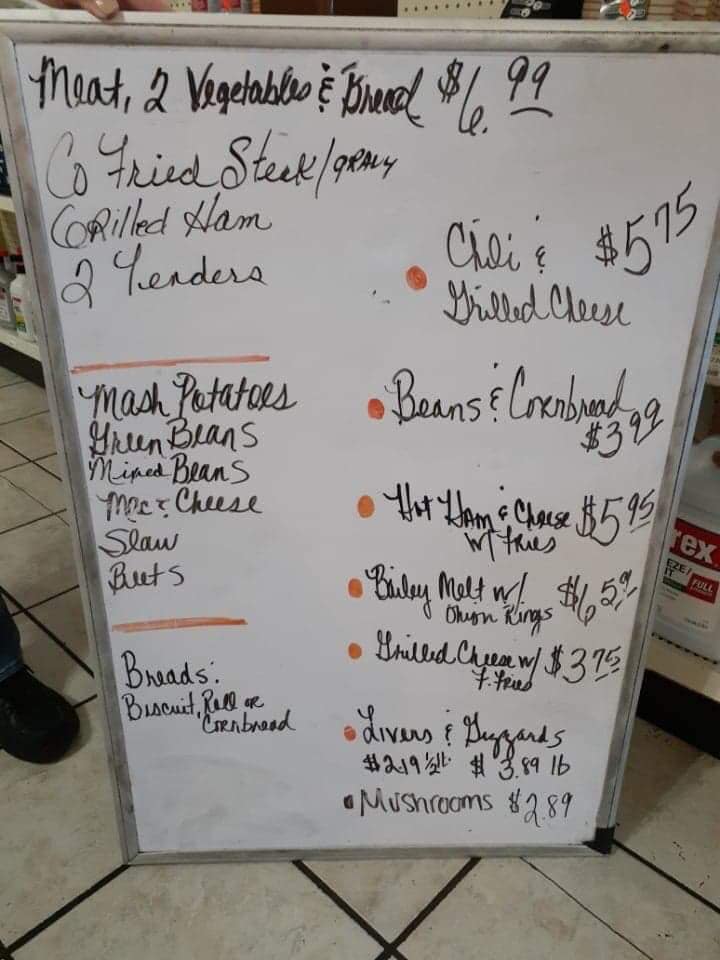 Meat, 2 Vegetables & Bread $6.99
Co Fried Steak/gravy
Grilled Ham
2 Tenders
Mash Potatoes
Green Beans
Mixed Beans
Mac & Cheese
Slaw
Beets
Breads:
Biscuit, Roll or
Cornbread
Chili & $5 75
Grilled Cheese
Beans & Cornbread
$3 99
Hot Ham & Cheese $5 95
w/ Fries
Bailey Melt w/ $6 59
Onion Rings
Grilled Cheese w/ $3 75
F. Fries
Livers & Gizzards
$2.19 ½ lb $3.89 lb
Mushrooms $2.89
rex
FULL